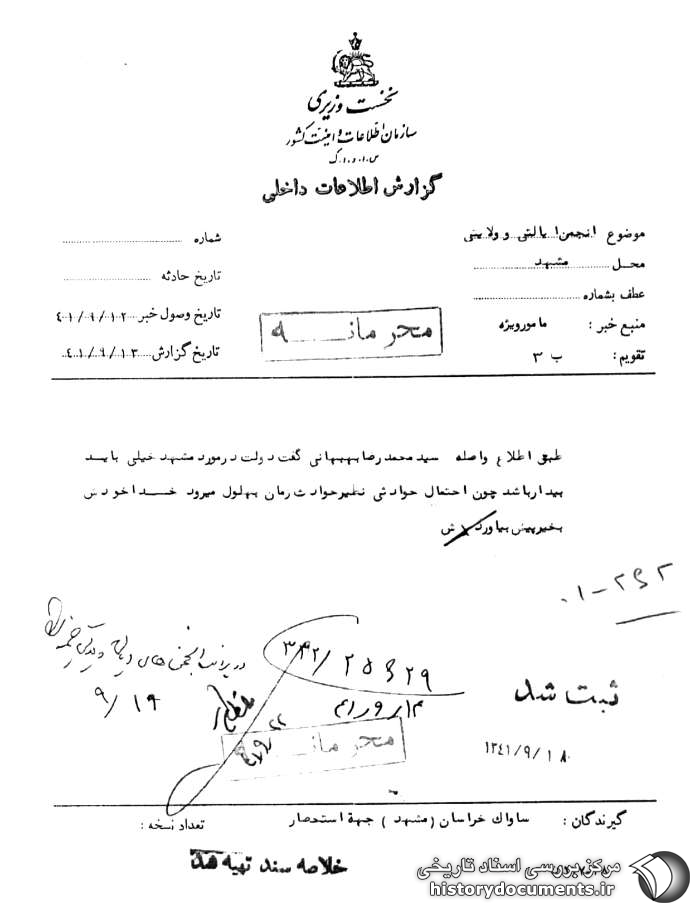 نخست وزیری
سازمان اطلاعات و امنیت کشور
س.ا.و.ا.ک
گزارش اطلاعات داخلی
موضوع انجمن ایالتی و ولایتی
محل مشهد
عطف بشماره
منبع خبر : مامورویژه
تقویم : ب ۳
شماره
تاریخ حادثه
تاریخ وصول خبر ۴۱/۹/۱۲
تاریخ گزارش ۴۱/۹/۱۳
محرمانه
طبق اطلاع واصله سیدمحمدرضا بهبهانی گفت دولت درمورد مشهد خیلی باید
بیدارباشد چون احتمال حوادثی نظیرحوادث زمان بهلول میرود خدا خودش
بخیرپیش بیاورد
در پرونده انجمن های
۹/۱۹
ثبت شد
۱۳۴۱/۹/۱۸
محرمانه
گیرندگان : ساواک خراسان (مشهد) جهة استحضار
تعداد نسخه :
خلاصه سند تهیه شد
مرکز بررسی اسناد تاریخی
historydocuments.ir